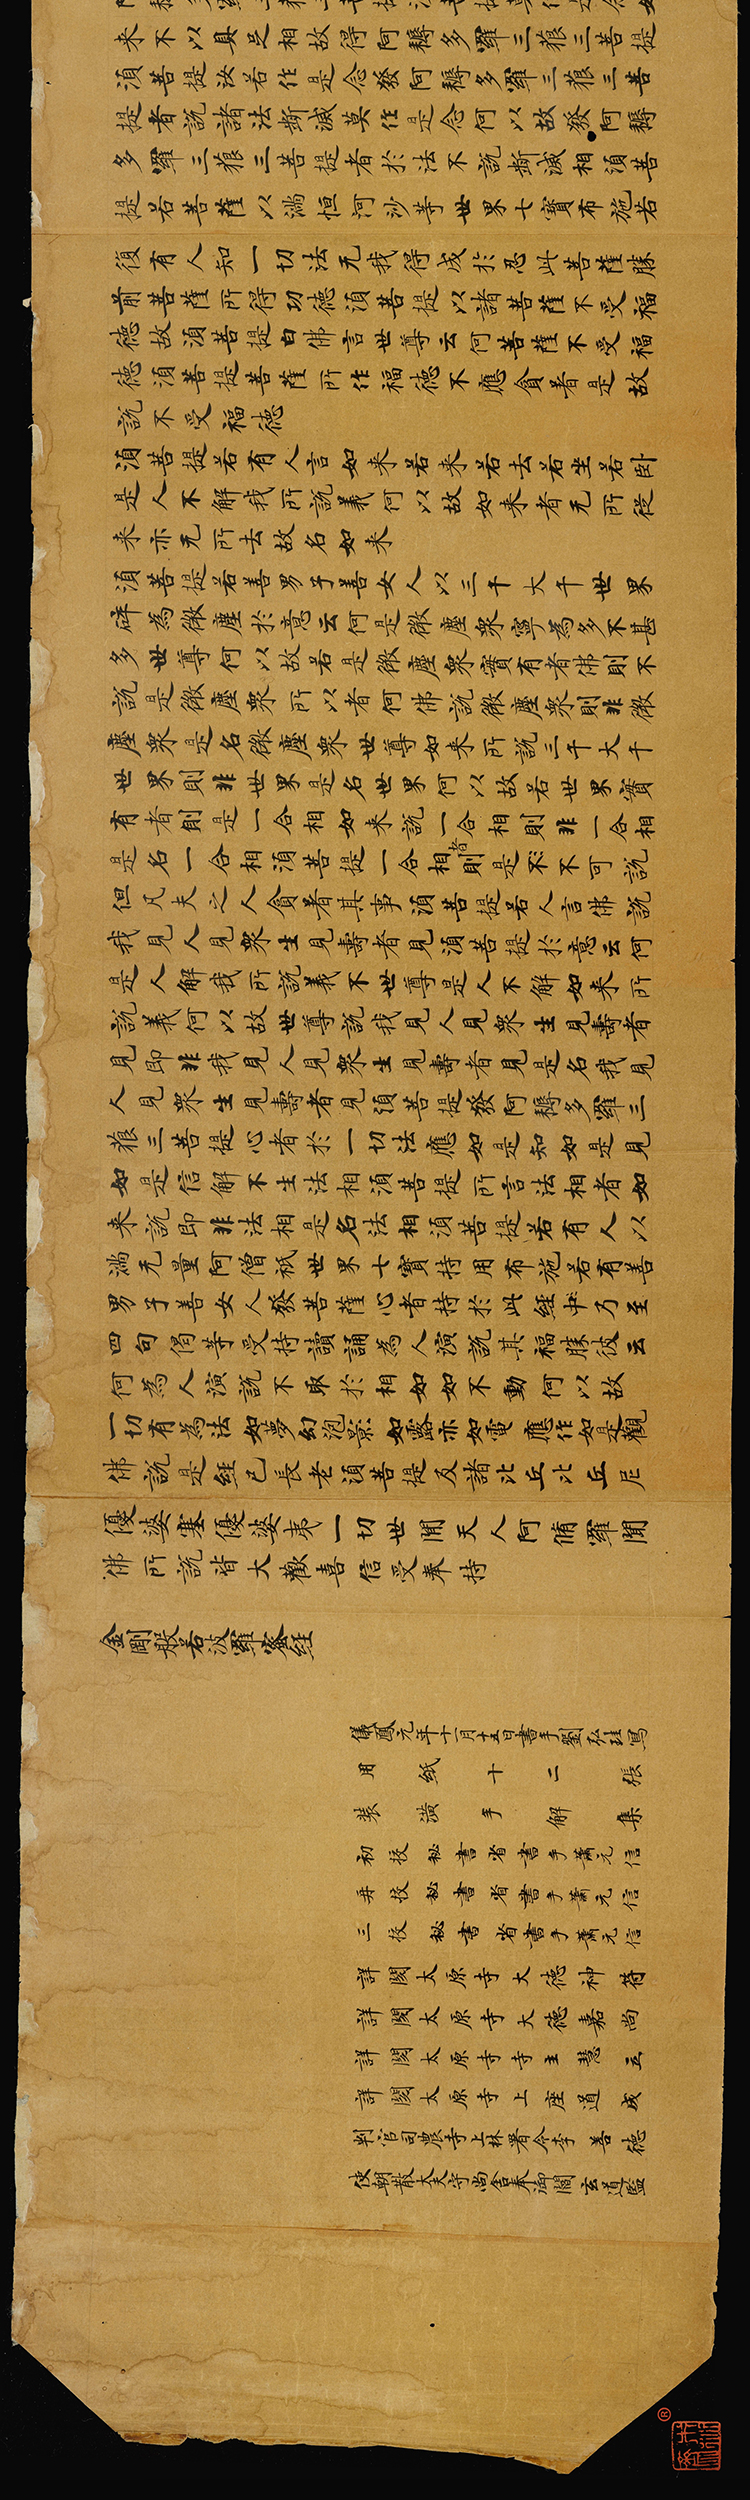 来不以具足相故得阿耨多羅三藐三菩提
湏菩提汝若作是念發阿耨多羅三藐三菩
提者說諸法斷滅莫作是念何以故發阿耨
多羅三藐三菩提者於法不說斷滅相湏菩
提若菩薩以満恒河沙等世界七寶布施若
復有人知一切法无我得成於忍此菩薩勝
前菩薩所得功德湏菩提以諸菩薩不受福
德故湏菩提白佛言世尊云何菩薩不受福
德湏菩提菩薩所作福德不應貪著是故
說不受福德
湏菩提若有人言如来若来若去若坐若卧
是人不解我所說義何以故如来者无所從
来亦无所去故名如来
湏菩提若善男子善女人以三千大千世界
碎為微塵於意云何是微塵衆寧為多不甚
多世尊何以故若是微塵衆實有者佛則不
說是微塵衆所以者何佛說微塵衆則非微
塵衆是名微塵衆世尊如来所說三千大千
世界則非世界是名世界何以故若世界實
有者則是一合相如来說一合相則非一合相
是名一合相湏菩提一合相者則是不可說
但凡夫之人貪著其事湏菩提若人言佛說
我見人見衆生見壽者見湏菩提於意云何
是人解我所說義不世尊是人不解如来所
說義何以故世尊說我見人見衆生見壽者
見即非我見人見衆生見壽者見是名我見
人見衆生見壽者見湏菩提發阿耨多羅三
藐三菩提心者於一切法應如是知如是見
如是信解不生法相湏菩提所言法相者如
来說即非法相是名法相湏菩提若有人以
満无量阿僧祇世界七寶持用布施若有善
男子善女人發菩薩心者持於此經中乃至
四句偈等受持讀誦為人演說其福勝彼云
何為人演說不取於相如如不動何以故
一切有為法如夢幻泡影如露亦如電應作如是觀
佛說是經已長老湏菩提及諸比丘比丘尼
優婆塞優婆夷一切世間天人阿脩羅聞
佛所說皆大歡喜信受奉持
金剛般若波羅蜜經
儀鳳元年十一月十五日書手劉弘珪寫
用紙十二張
裝潢手解集
初校秘書省書手蕭元信
再校秘書省書手蕭元信
三校秘書省書手蕭元信
詳閱太原寺大德神符
詳閱太原寺大德嘉尚
詳閱太原寺寺主慧立
詳閱太原寺上座道成
判官司農寺上林署令李善德
使朝散大夫守尚舍奉御閻玄道監